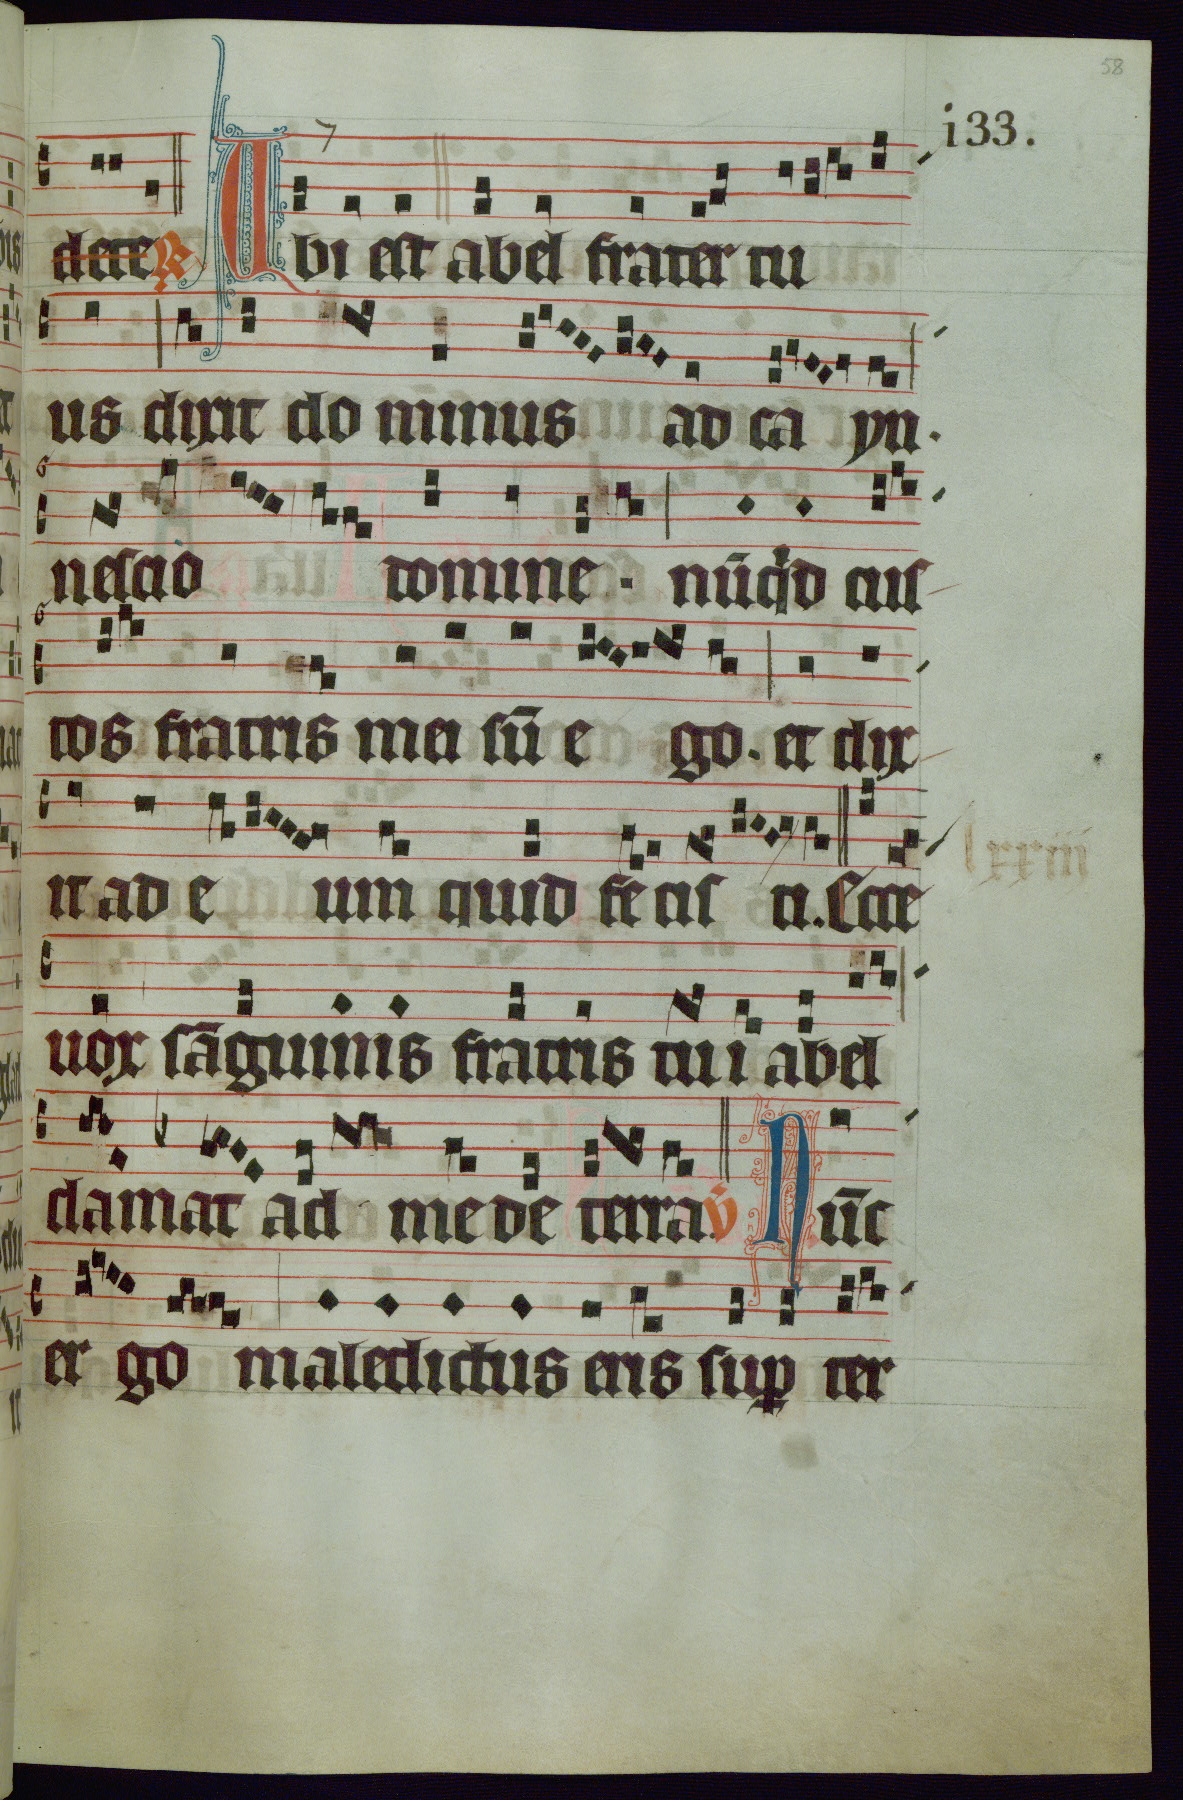 58
i33.
7
dete R Ubi est abel frater tu
us dixit do minus ad ca yn.
nescio domine . nūqid cus
tos fratris mei sū e go. et dix
it ad e um quid fe cis ti. Ecce
lxxiii
vox sāguinis fratris tui abel
clamat ad me de terra. v Nūc
er go maledictus eris sup ter